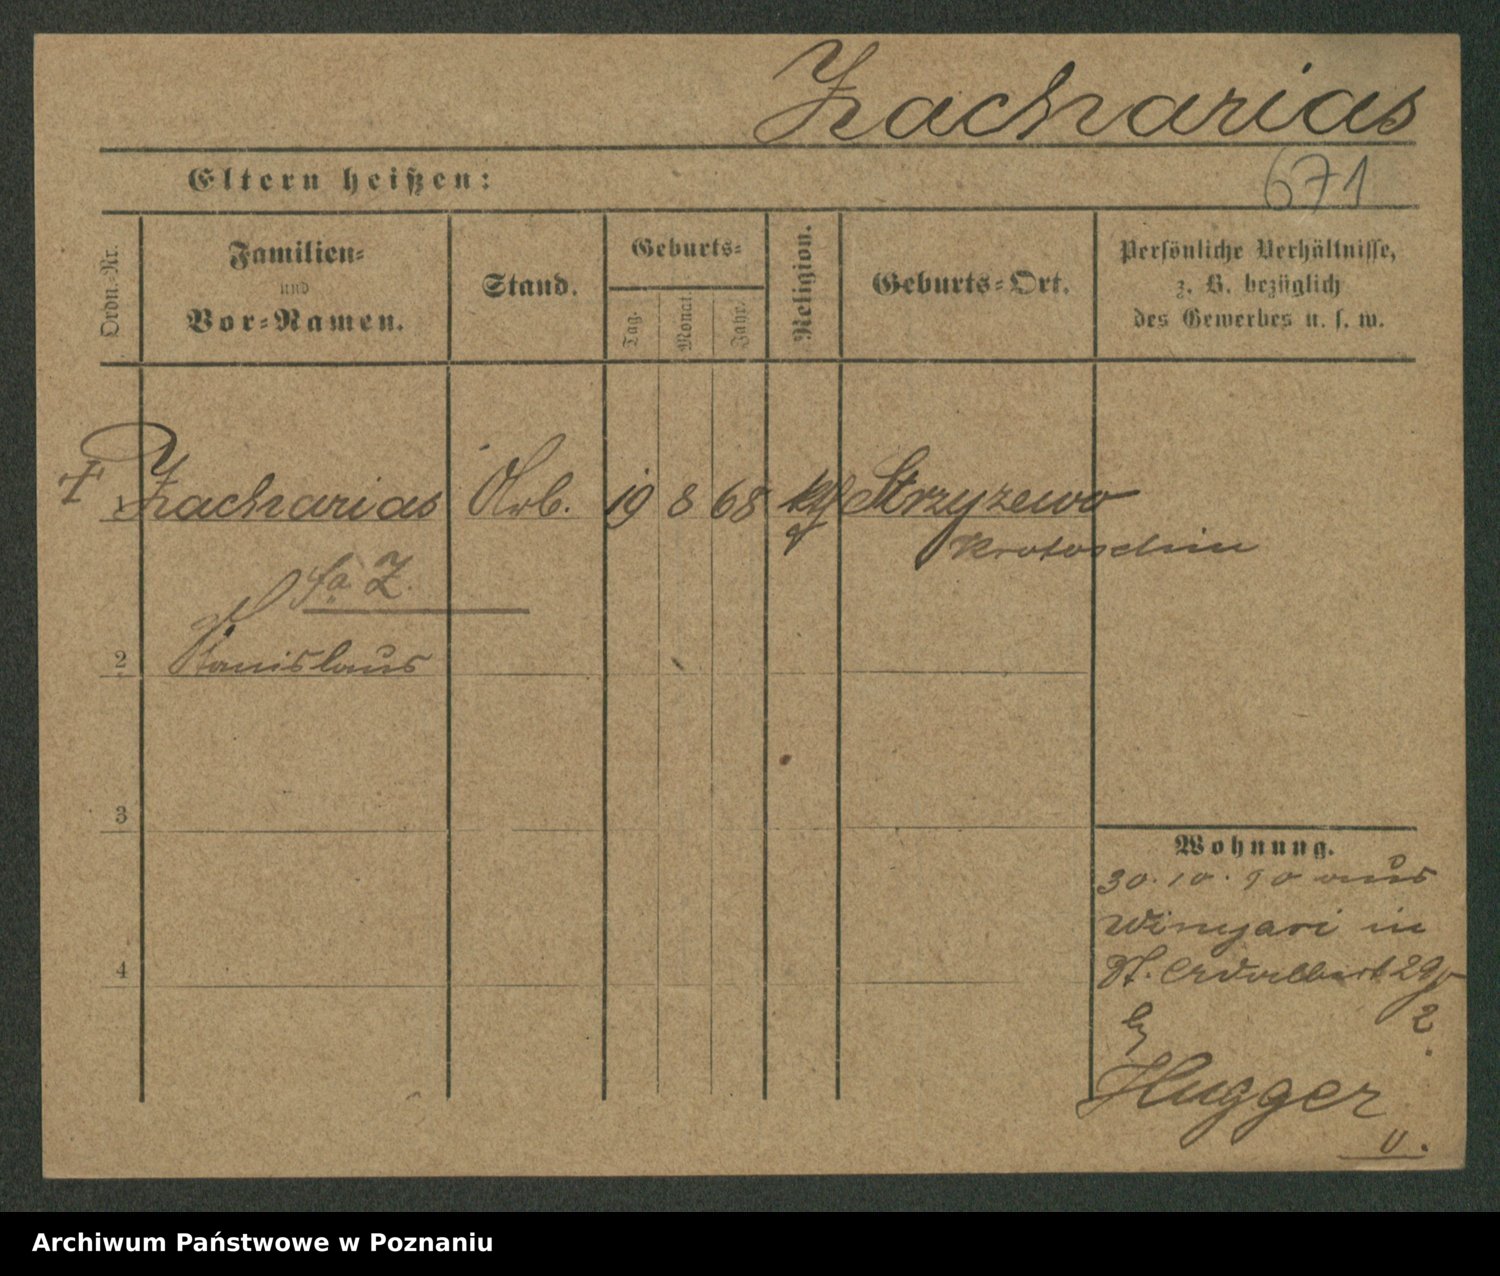 Zacharias
Eltern heißen:
671
Ordn.-Nr.
Familien-
und
Vor-Namen.
Stand.
Geburts-
Tag.
Monat.
Jahr.
Religion.
Geburts-Ort.
Persönliche Verhältnisse,
z. B. bezüglich
des Gewerbes u. s. w.
Zacharias Arb. 19 8 68 Strzyzewo
Krotoschin
Z.
2 Stanislaus
3
Wohnung.
30.10.90 aus
Winyari in
4
St. Adalbert 29
2.
Hugger
u.
Archiwum Państwowe w Poznaniu